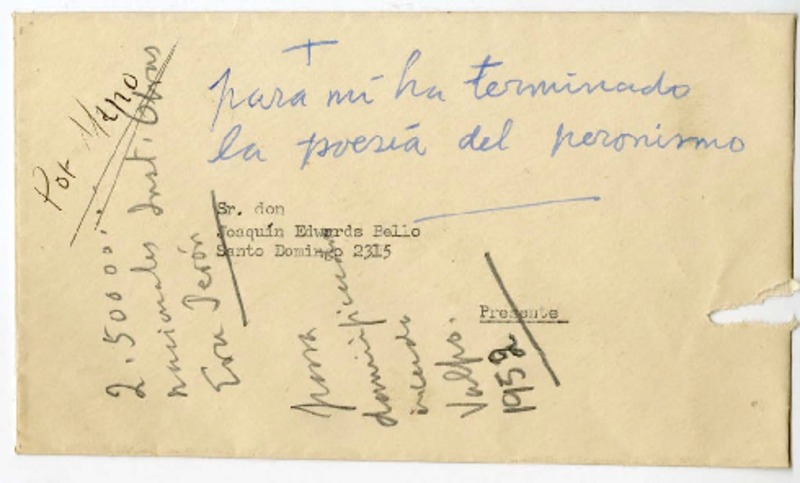 para mi ha terminado
la poesía del peronismo
Sr. don
Joaquín Edwards Bello
Santo Domingo 2315
Presente
Por
2.500000
nacionales Inst. Obras
Eva Perón
para
damnificados
incendio
Valpo.
1952